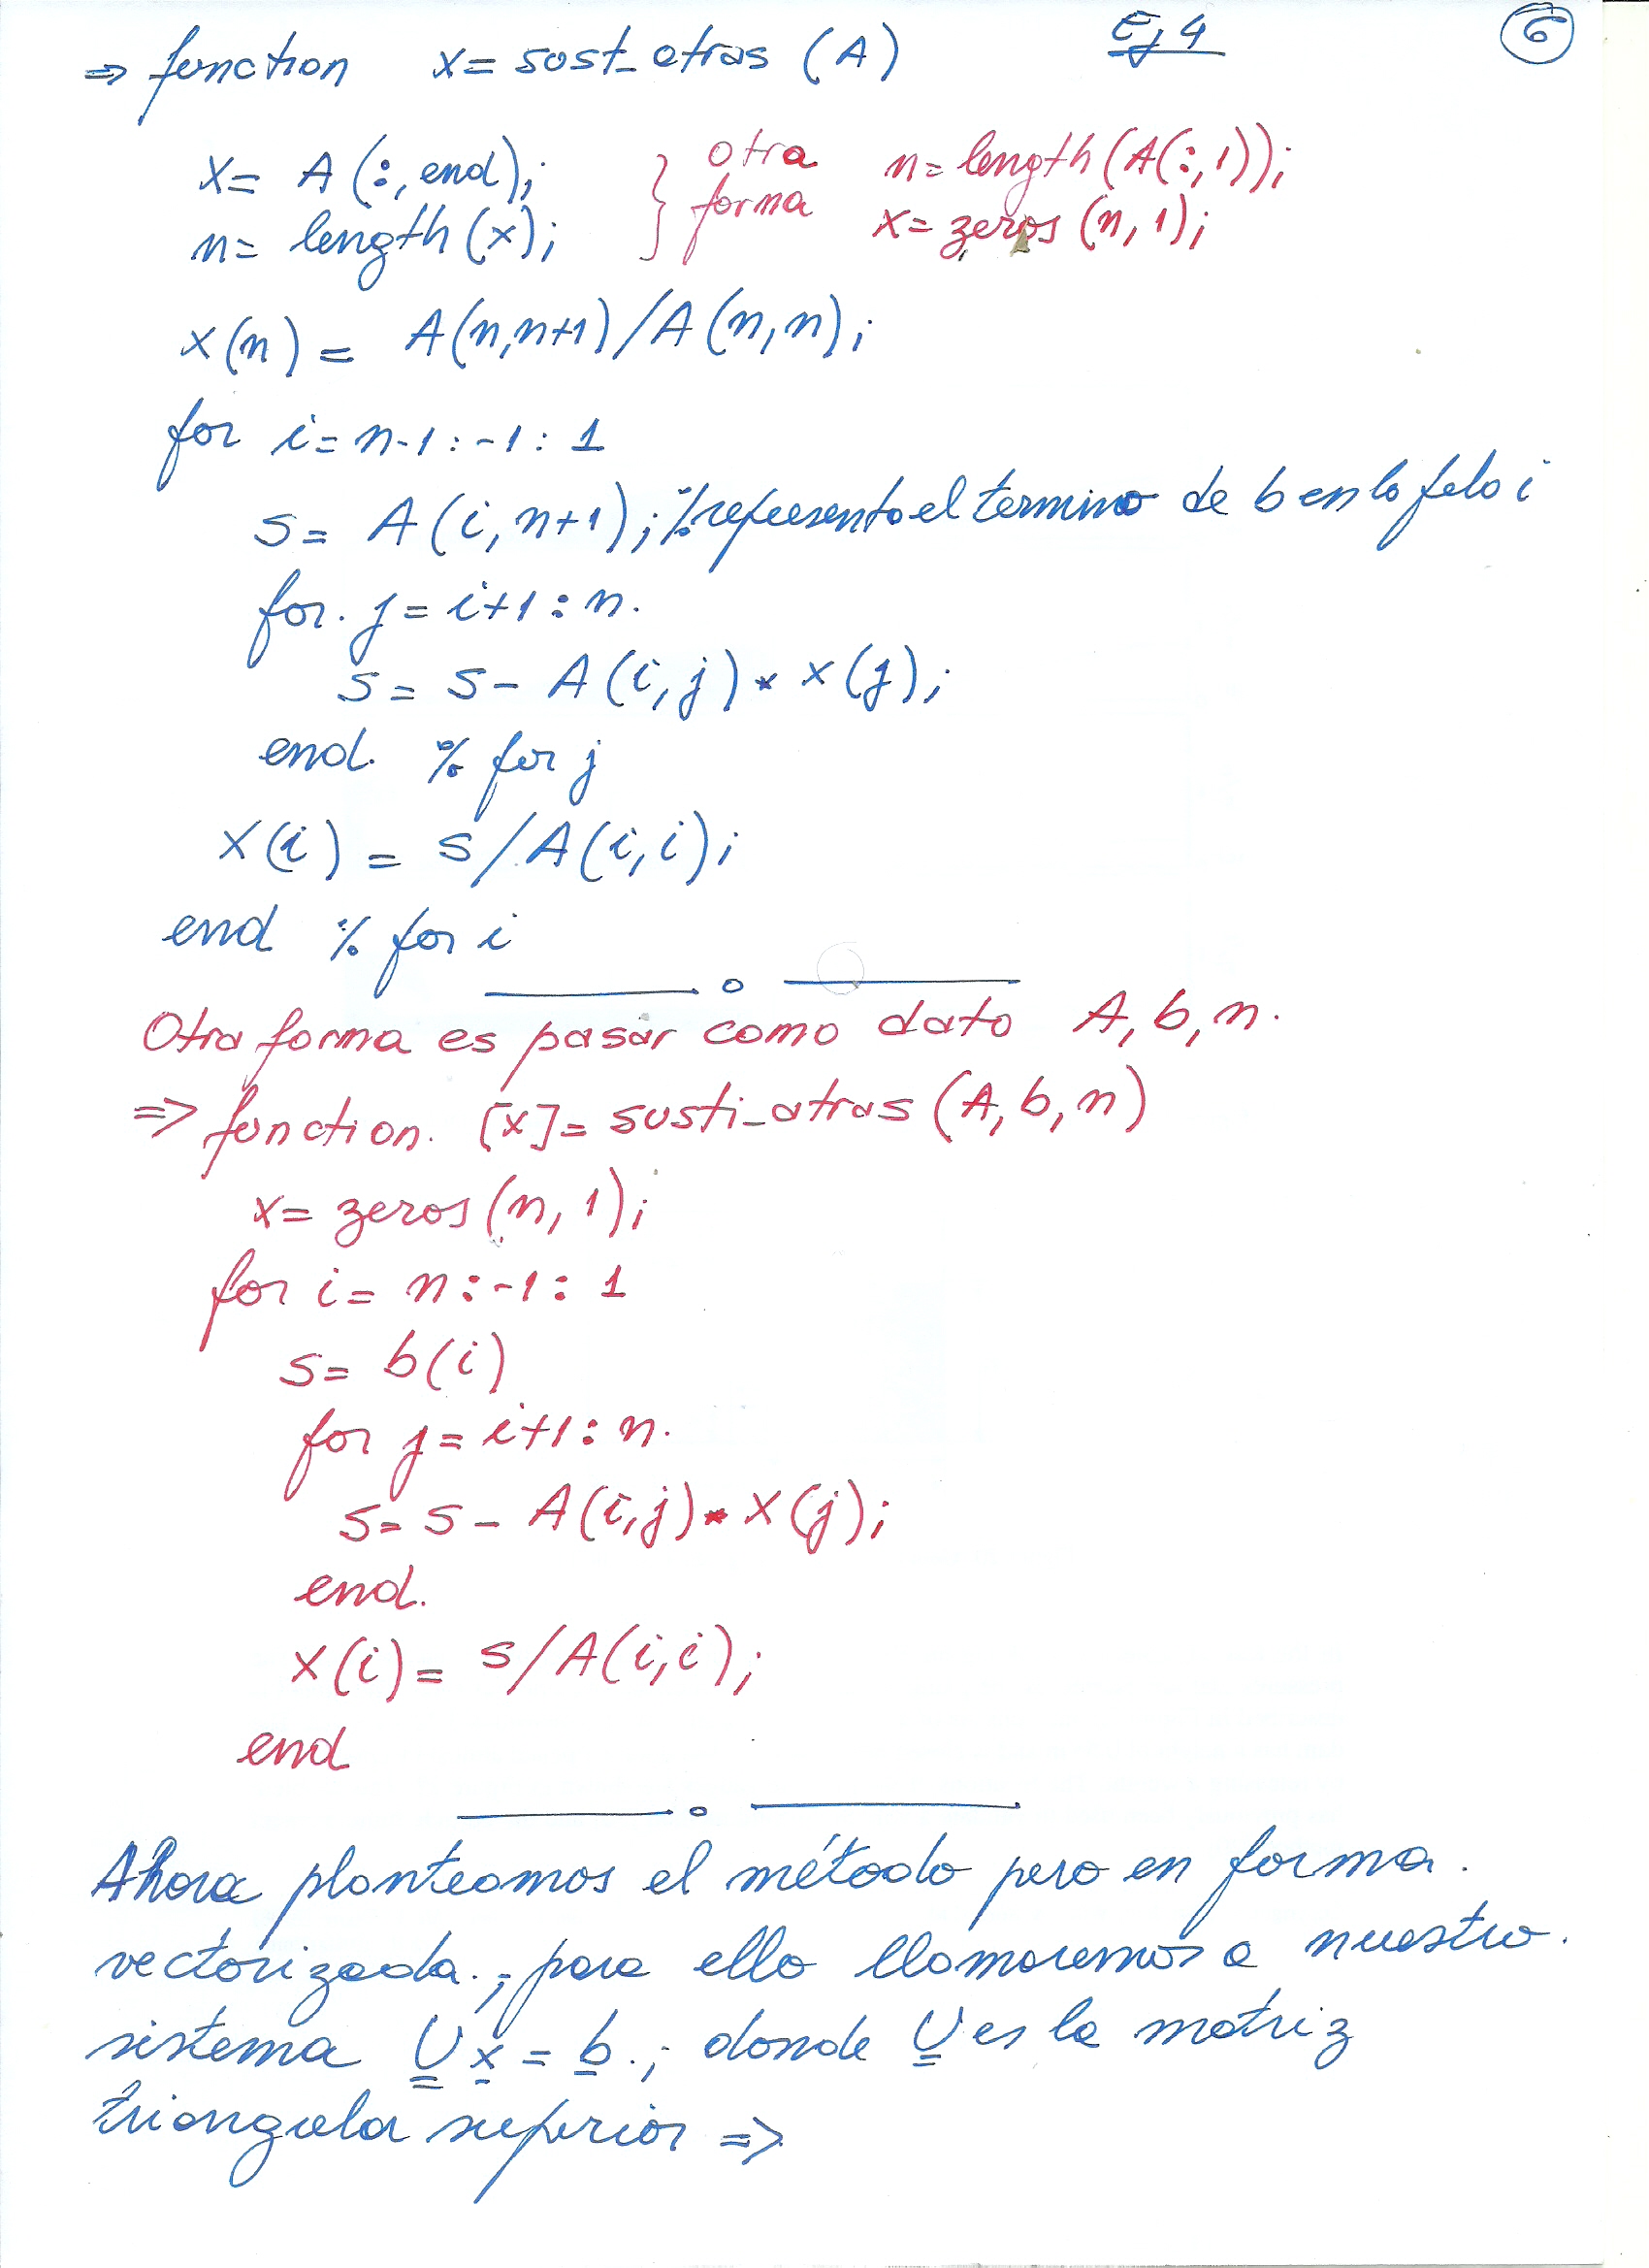 Ej 4
6
⇒ function x= sust_atras (A)
x= A(:,end);
n= length(x);
} otra forma
n= length(A(:,1));
x= zeros(n,1);
x(n) = A(n,n+1)/A(n,n);
for i=n-1:-1:1
s= A(i,n+1); % representa el termino de b en la fila i
for. j=i+1:n.
s= s- A(i,j)*x(j);
end. % for j
x(i) = s/A(i,i);
end % for i
Otra forma es pasar como dato A, b, n.
⇒ function. [x]= susti_atras (A, b, n)
x= zeros(n,1);
for i= n:-1:1
s= b(i)
for j= i+1:n.
s= s- A(i,j)*x(j);
end.
x(i)= s/A(i,i);
end
Ahora planteamos el método pero en forma.
vectorizada.; para ello llamaremos a nuestro.
sistema U x = b.; donde U es la matriz
triangular superior ⇒